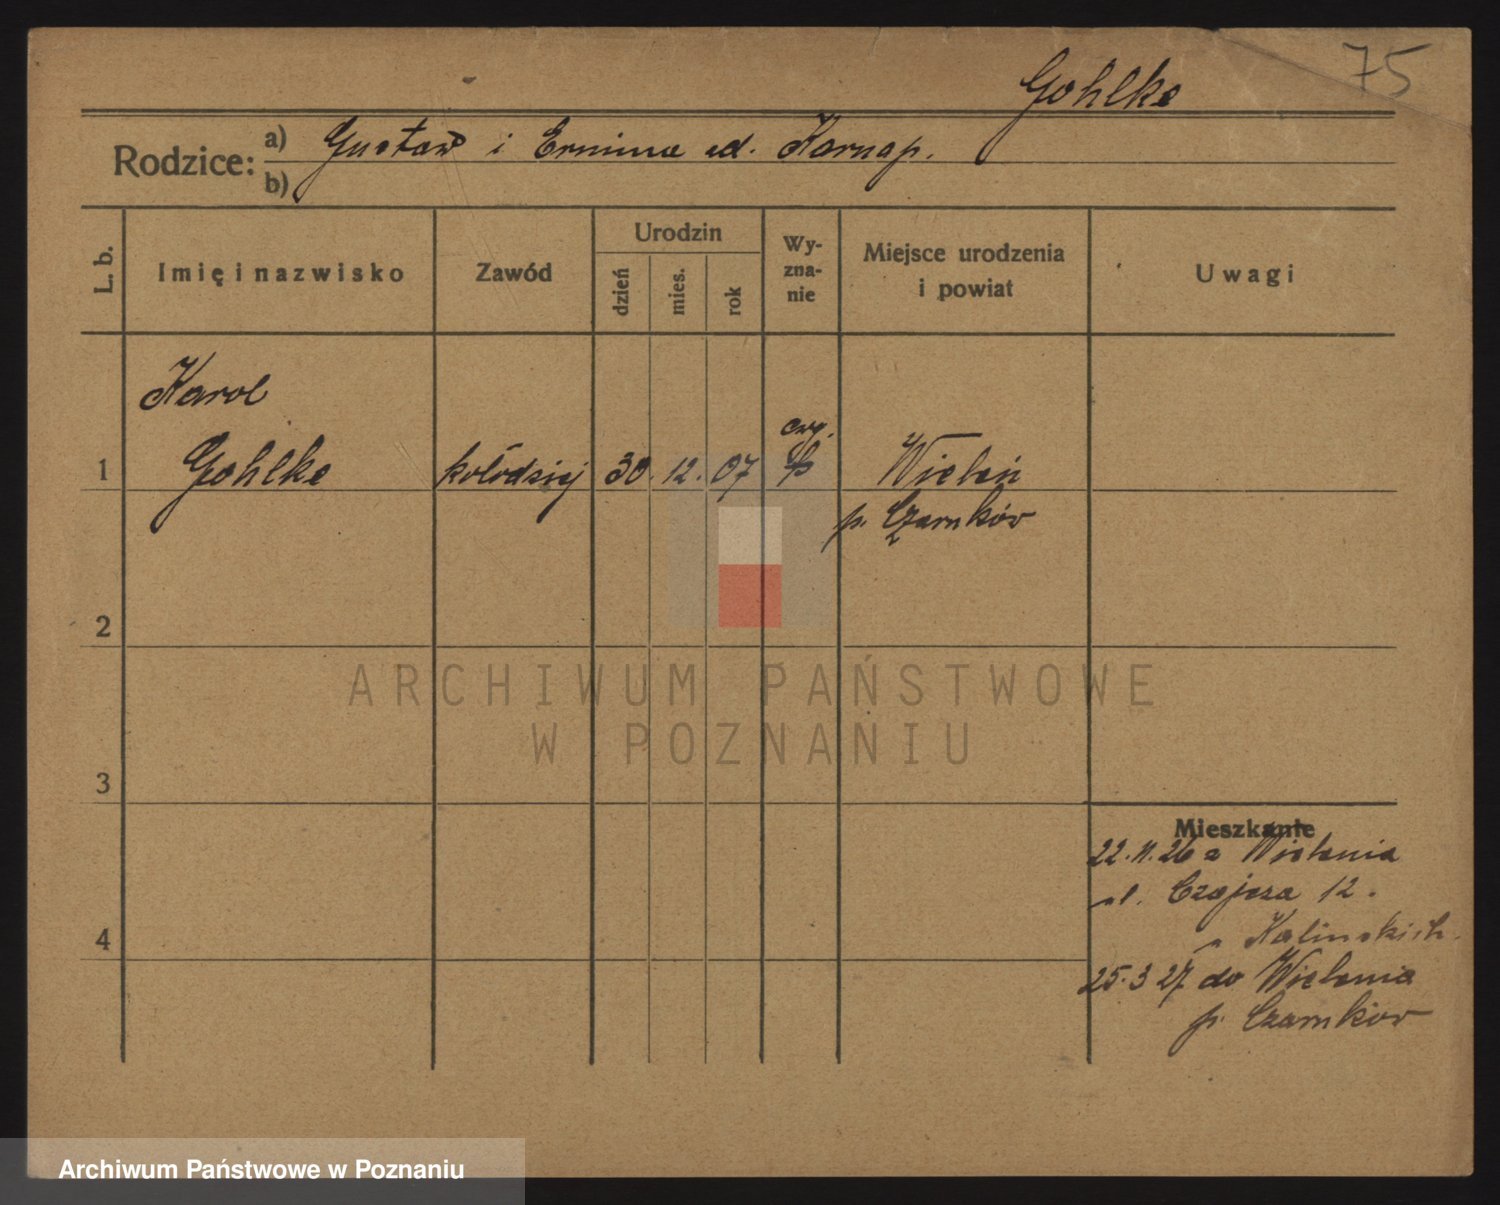 75
Gohlke
Rodzice:
a) Gustaw i Ermina zd. Karnap.
b)
L. b.
Imię i nazwisko
Zawód
Urodzin
dzień
mies.
rok
Wy-
zna-
nie
Miejsce urodzenia
i powiat
Uwagi
Karol
1 Gohlke kołodziej 30. 12. 07 Wieleń
p. Czarnków
2
3
4
Mieszkanie
22.11.26 z Wielenia
ul. 12.
u Kalinskich.
25.3 27 do Wielenia
p. Czarnków
ARCHIWUM PAŃSTWOWE
W POZNANIU
Archiwum Państwowe w Poznaniu